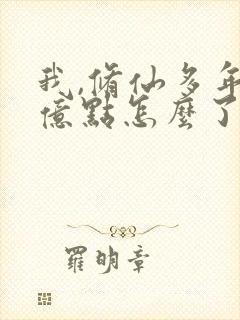 我,脩仙多年
億點怎麼了
羅明章